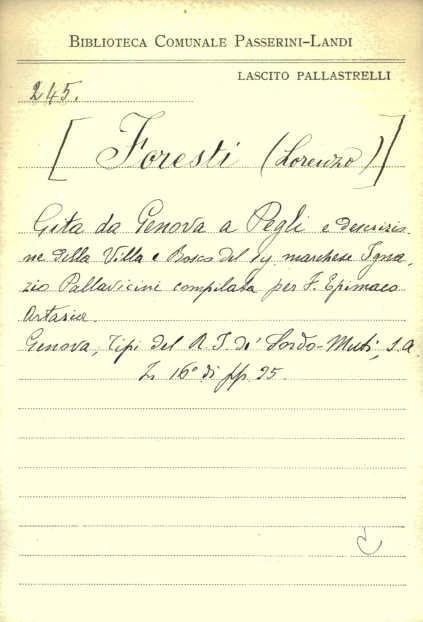 BIBLIOTECA COMUNALE PASSERINI-LANDI
LASCITO PALLASTRELLI
245.
[Foresti (Lorenzo)]
Gita da Genova a Pegli e descrizio-
ne della Villa e Bosco del Sy. marchese Igna-
zio Pallavicini compilata per F. Epimaco
Artasia.
Genova, Tipi del R. I. de' Sordo-Muti, s.a
In 16° di pp. 25.